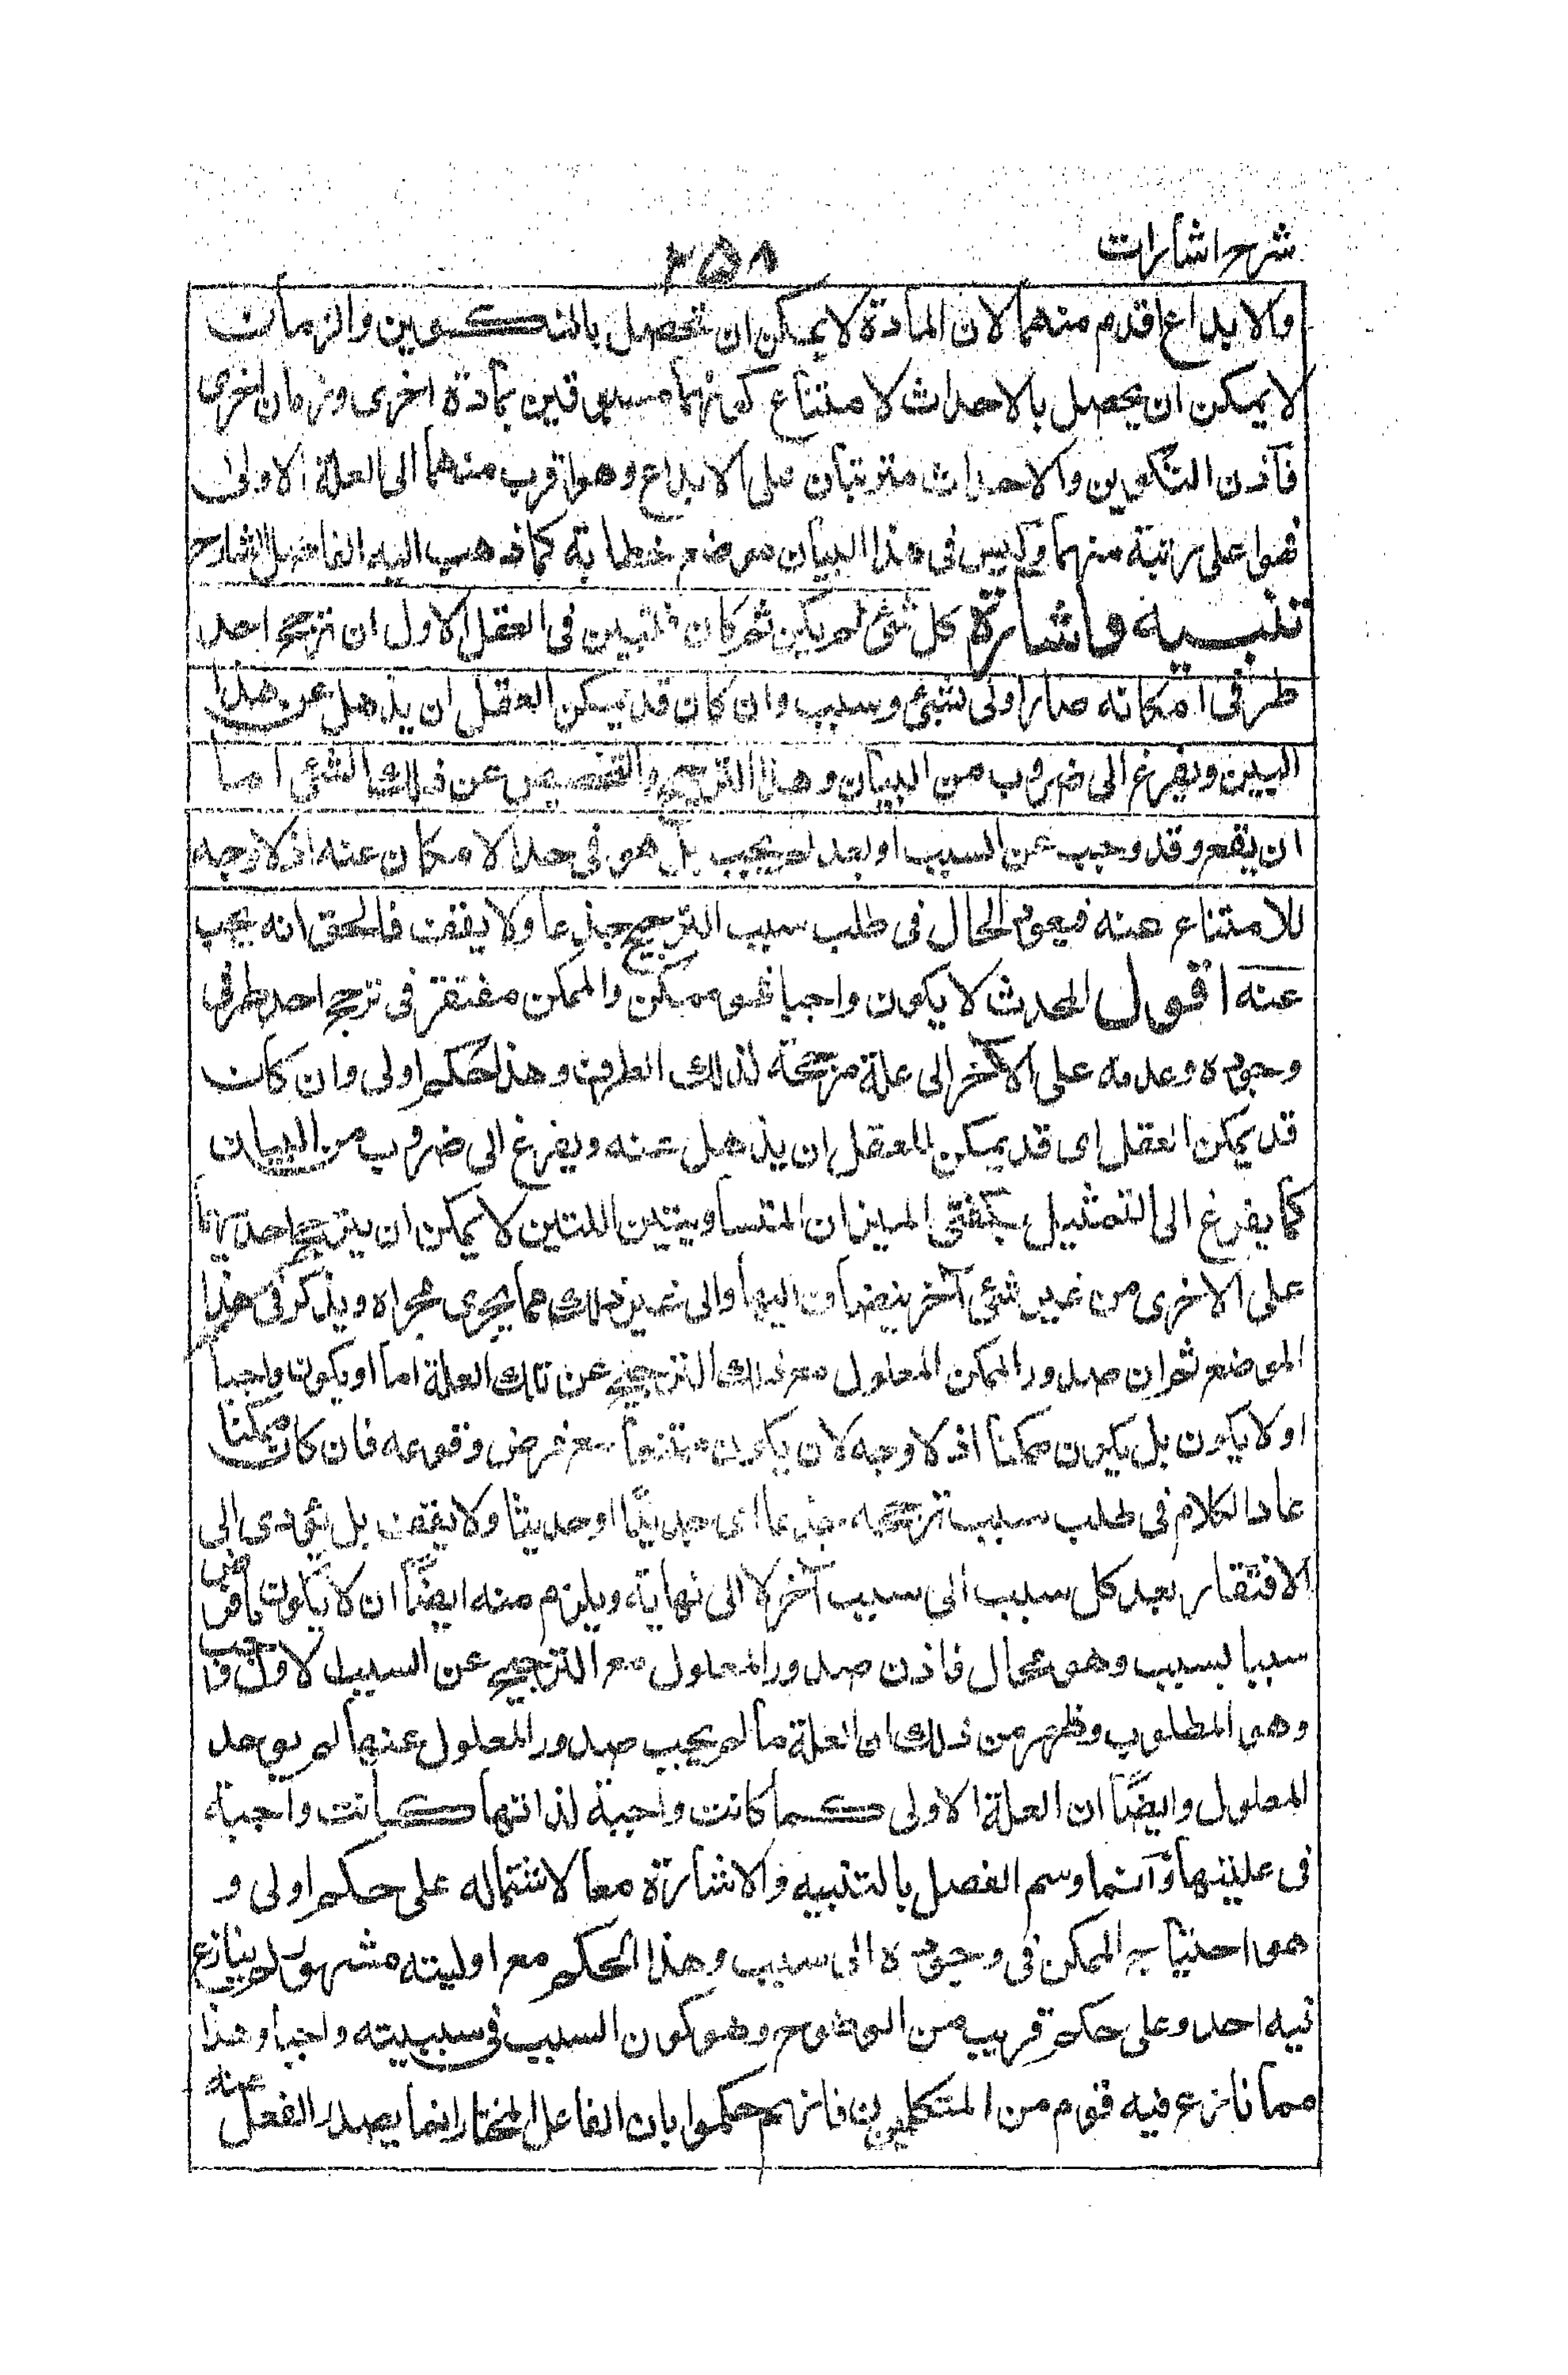 شرح اشارات
٢٥٨
والابداع اقدم منهما لان المادة لا يمكن ان تحصل بالتكوين والزمان
لا يمكن ان يحصل بالاحداث لامتناع كونهما مسبوقين بمادة اخرى وزمان اخرى
فاذن التكوين والاحداث مترتبان على الابداع وهو اقرب منهما الى العلة الاولى
فهو اعلى رتبة منهما وليس فى هذا البيان موضع خطابة كما ذهب اليه الفاضل الشارح
تنبيه واشارة كل شئ لم يكن ثم كان فتبين فى العقل الاول ان ترجح احد
طرفى امكانه صار اولى بشئ وسبب وان كان قد يمكن العقل ان يذهل عن هذا
البين ويفرغ الى ضروب من البيان وهذا الترجيح والتخصيص عن ذلك الشئ اما
ان يقع وقد وجب عن السبب او بعد لم يجب بل هو فى حد الامكان عنه اذ لا وجه
للامتناع عنه فيعود الحال فى طلب سبب الترجيح جذعا ولا يقف فالحق انه يجب
عنه اقول المحدث لا يكون واجبا فهو ممكن والممكن مفتقر فى ترجح احد طرفى
وجوده وعدمه على الآخر الى علة مرجحة لذلك الطرف وهذا حكم اولى وان كان
قد يمكن العقل اى قد يمكن للعقل ان يذهل عنه ويفرغ الى ضروب من البيان
كما يفرغ الى التمثيل بكفتى الميزان المتساويتين اللتين لا يمكن ان يترجح احديهما
على الاخرى من غير شئ آخر ينضاف اليها والى غير ذلك مما يجرى مجراه ويذكر فى هذا
الموضع ثم ان صدور الممكن المعلول مع ذلك الترجيح عن تلك العلة اما او يكون واجبا
او لا يكون بل يكون ممكناً اذ لا وجه لان يكون ممتنعاً مع فرض وقوعه فان كان ممكنا
عاد الكلام فى طلب سبب ترجحه جذعا اى جديدًا او حديثا ولا يقف بل يؤدى الى
الافتقار بعد كل سبب الى سبب آخر لا الى نهاية ويلزم منه ايضًا ان لا يكون ما فرض
سببا بسبب وهو محال فاذن صدور المعلول مع الترجيح عن السبب الاول واجب
وهو المطلوب وظهر من ذلك ان العلة ما لم يجب صدور المعلول عنها لم يوجد
المعلول وايضًا ان العلة الاولى كما كانت واجبة لذاتها كانت واجبة
فى عليتها وانما وسم الفصل بالتنبيه والاشارة معا لاشتماله على حكم اولى و
هو احتياج الممكن فى وجوده الى سبب وهذا الحكم مع اوليته مشهور لم ينازع
فيه احد وعلى حكم قريب من الوضوح وهو كون السبب فى سببيته واجبا وهذا
مما نازع فيه قوم من المتكلمين فانهم حكموا بان الفاعل المختار انما يصدر الفعل عنه